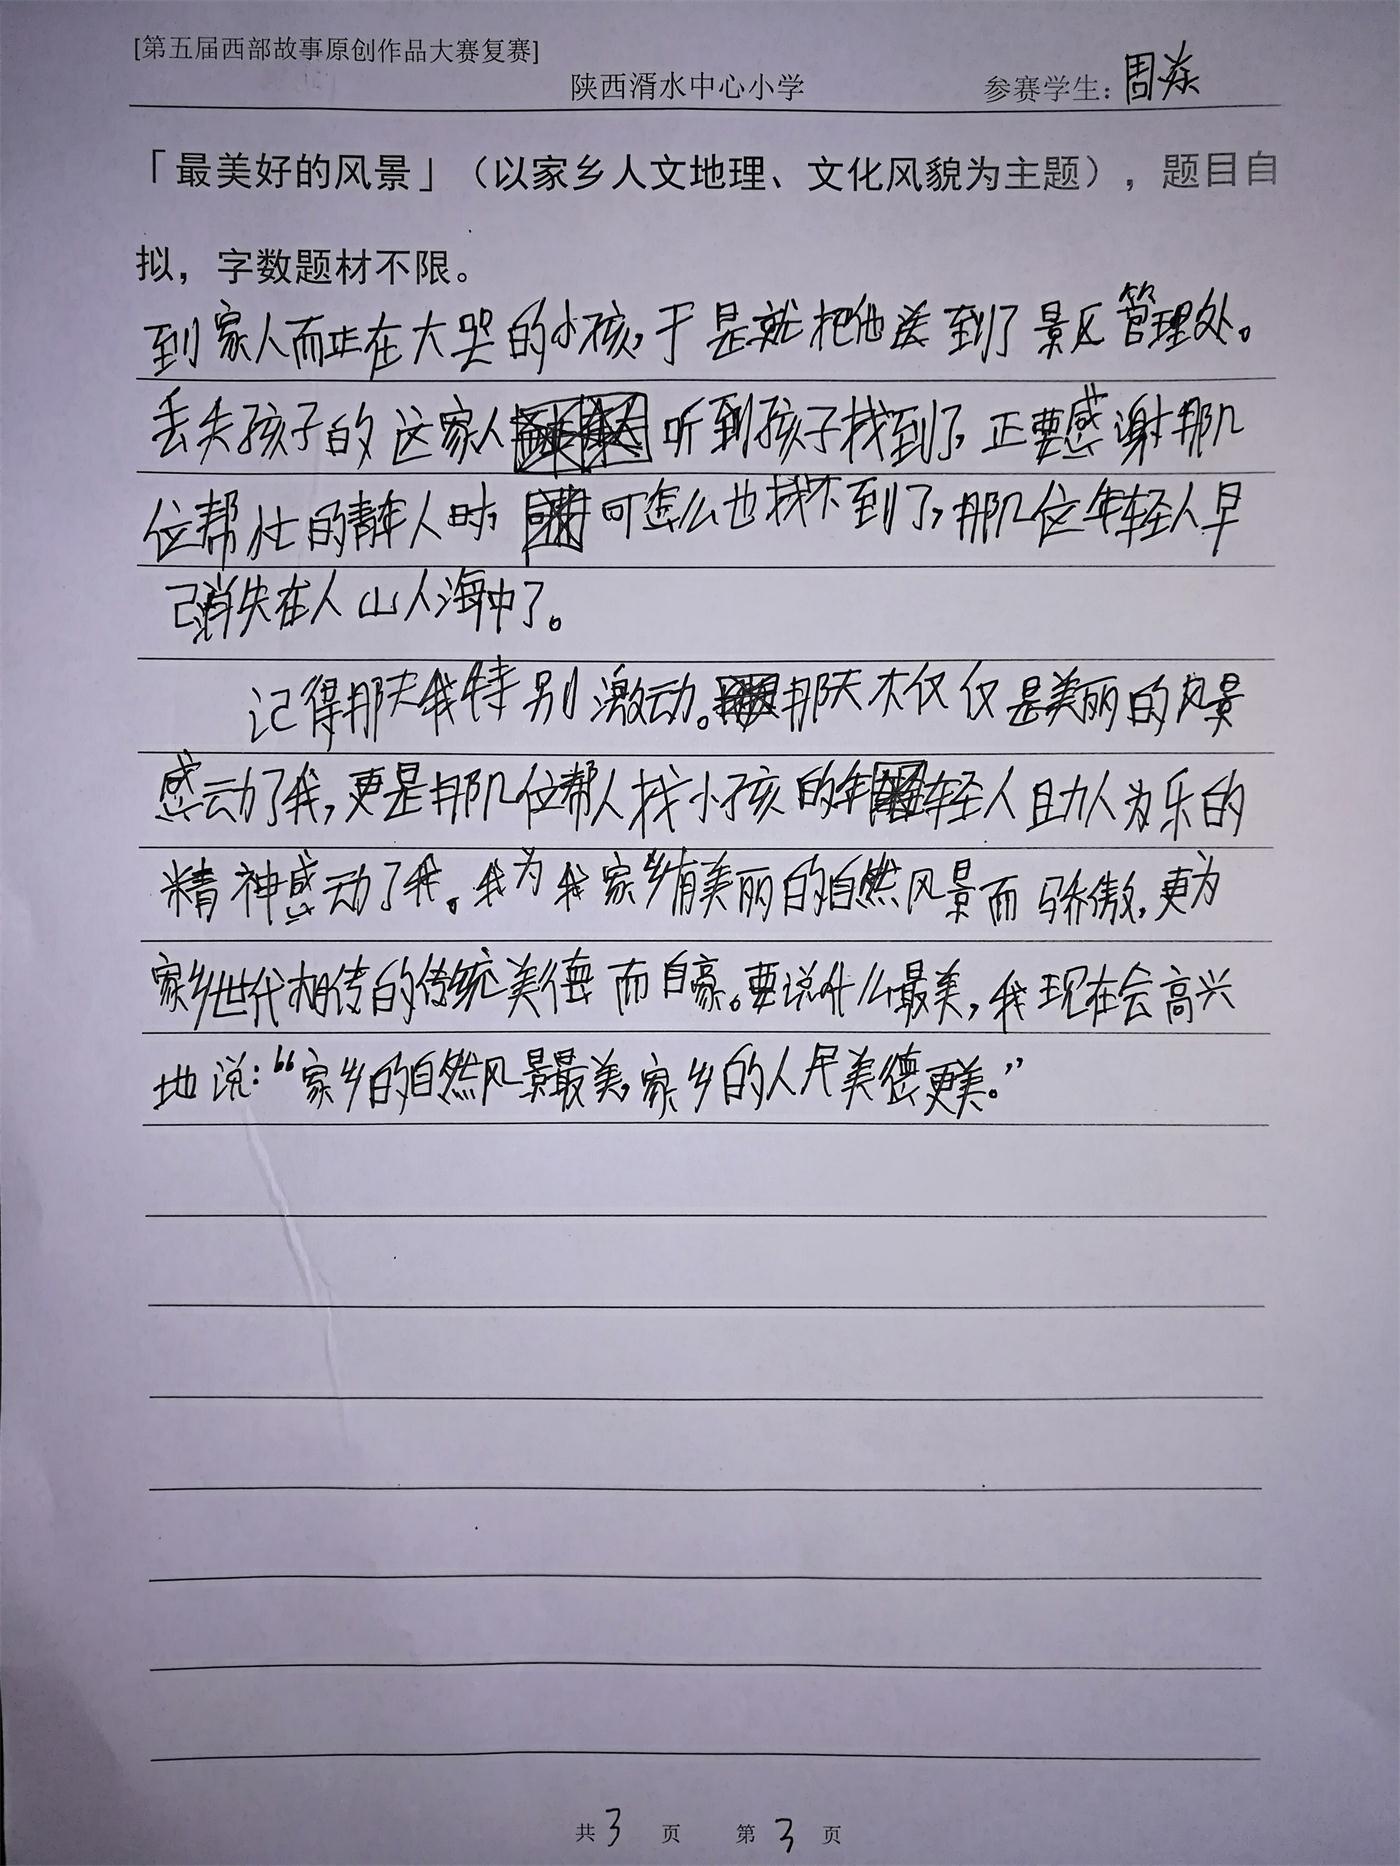 [第五届西部故事原创作品大赛复赛]
陕西湑水中心小学 参赛学生：周焱
「最美好的风景」（以家乡人文地理、文化风貌为主题），题目自
拟，字数题材不限。
到家人而正在大哭的小孩，于是就把他送到了景区管理处。
丢失孩子的这家人听到孩子找到了，正要感谢那几
位帮忙的青年人时，可怎么也找不到了，那几位年轻人早
已消失在人山人海中了。
记得那天我特别激动。那天不仅仅是美丽的风景
感动了我，更是那几位帮人找小孩的年轻人且力人为乐的
精神感动了我。我为我家乡有美丽的自然风景而骄傲，更为
家乡世代相传的传统美德而自豪。要说什么最美，我现在会高兴
地说：“家乡的自然风景最美，家乡的人民美德更美。”
共3页 第3页